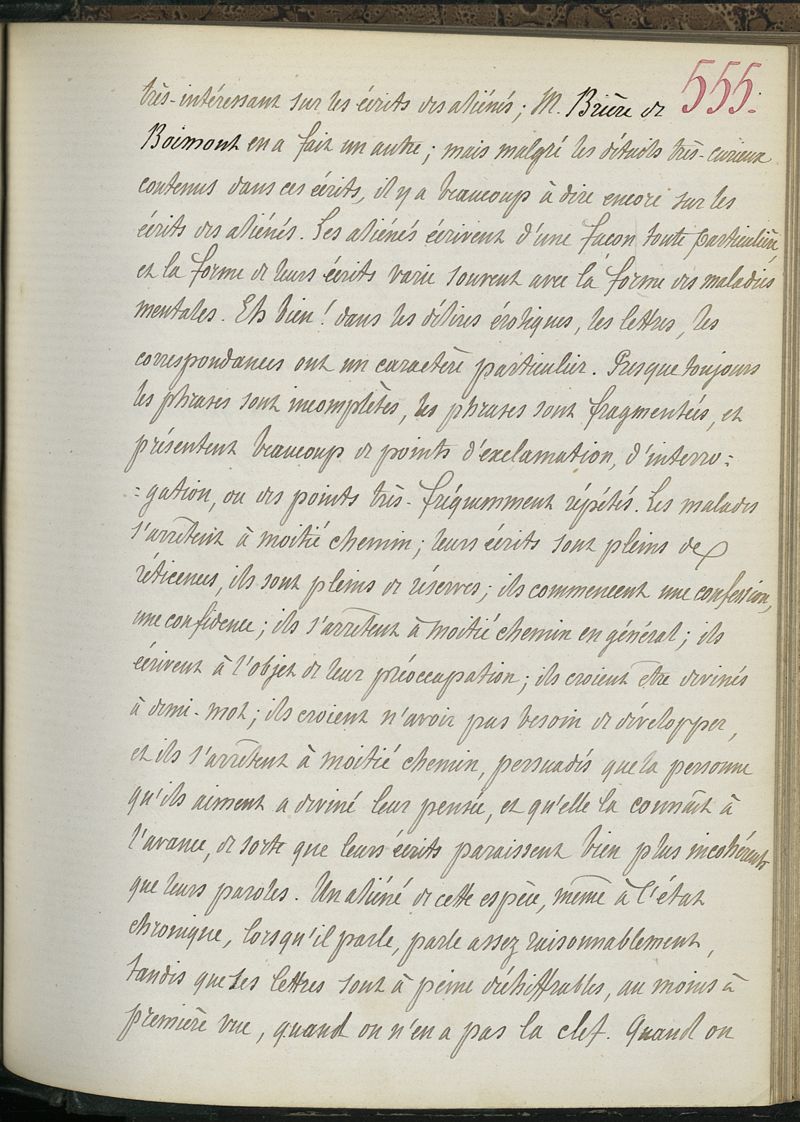 555.
très-intéressant sur les écrits des aliénés ; M. Brière de
Boismont en a fait un autre ; mais malgré les détails très-curieux
contenus dans ces écrits, il y a beaucoup à dire encore sur les
écrits des aliénés. Les aliénés écrivent d'une façon toute particulière,
et la forme de leurs écrits varie souvent avec la forme des maladies
mentales. Eh bien ! dans les délires érotiques, les lettres, les
correspondances ont un caractère particulier. Presque toujours
les phrases sont incomplètes, les phrases sont fragmentées, et
présentent beaucoup de points d'exclamation, d'interro=
=gation, ou des points très-fréquemment répétés. Les malades
s'arrêtent à moitié chemin ; leurs écrits sont pleins de
réticences, ils sont pleins de réserves ; ils commencent une confession,
une confidence ; ils s'arrêtent à moitié chemin en général ; ils
écrivent à l'objet de leur préoccupation ; ils croient être devinés
à demi-mot ; ils croient n'avoir pas besoin de développer,
et ils s'arrêtent à moitié chemin, persuadés que la personne
qu'ils aiment a deviné leur pensée, et qu'elle la connaît à
l'avance, de sorte que leurs écrits paraissent bien plus incohérents
que leurs paroles. Un aliéné de cette espèce, même à l'état
chronique, lorsqu'il parle, parle assez raisonnablement,
tandis que ses lettres sont à peine déchiffrables, au moins à
première vue, quand on n'en a pas la clef. Quand on